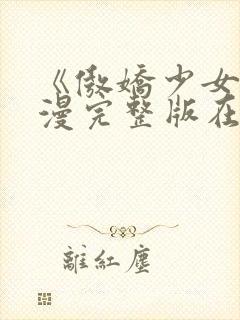 《傲嬌少女
漫完整版在
離紅塵